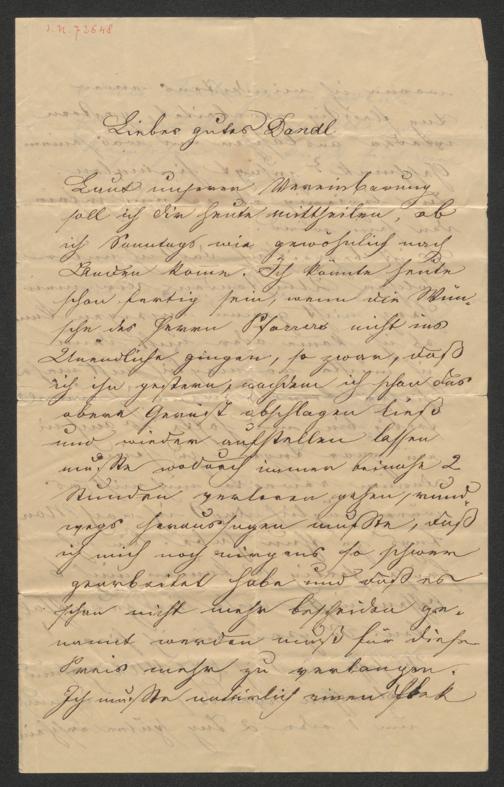 J.N. 73648
Liebes gutes Dandl
Laut unserer Vereinbarung
soll ich dir heute mittheilen, ob
ich Sonntags, wie gewöhnlich nach
Baden kome. Ich könnte heute
schon fertig sein, wenn die Wün-
sche des Herrn Pfarrers nicht ins
Unendliche gingen, so zwar, daß
ich ihn gestern, nachdem ich schon das
obere Gerüst abschlagen ließ
und wieder aufstellen lassen
mußte wodurch immer beinahe 2
Stunden verloren gehen, rund-
wegs heraussagen mußte, daß
ich mich noch nirgens so schwer
gearbeitet habe und daß es
schon nicht mehr bescheiden ge-
nannt werden muß für diesen
Preis mehr zu verlangen.
Ich mußte natürlich einen